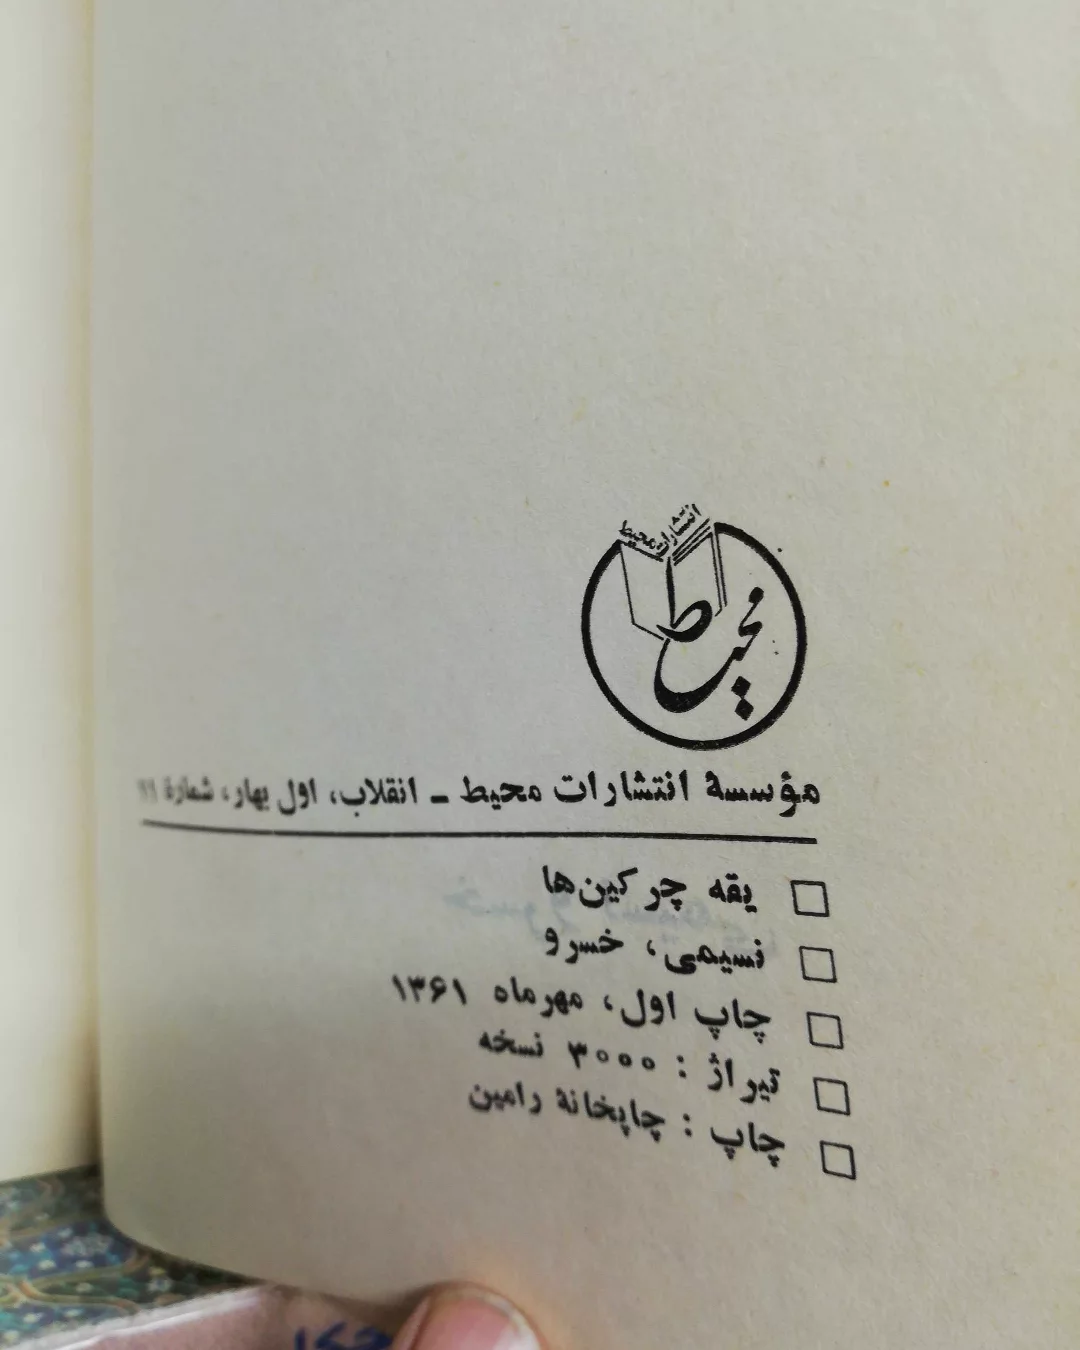 انتشارات محیط
محیط
مؤسسهٔ انتشارات محیط ـ انقلاب، اول بهار، شمارهٔ
یقه چرکین‌ها
نسیمی، خسرو
چاپ اول، مهرماه ۱۳۶۱
تیراژ : ۳۰۰۰ نسخه
چاپ : چاپخانهٔ رامین